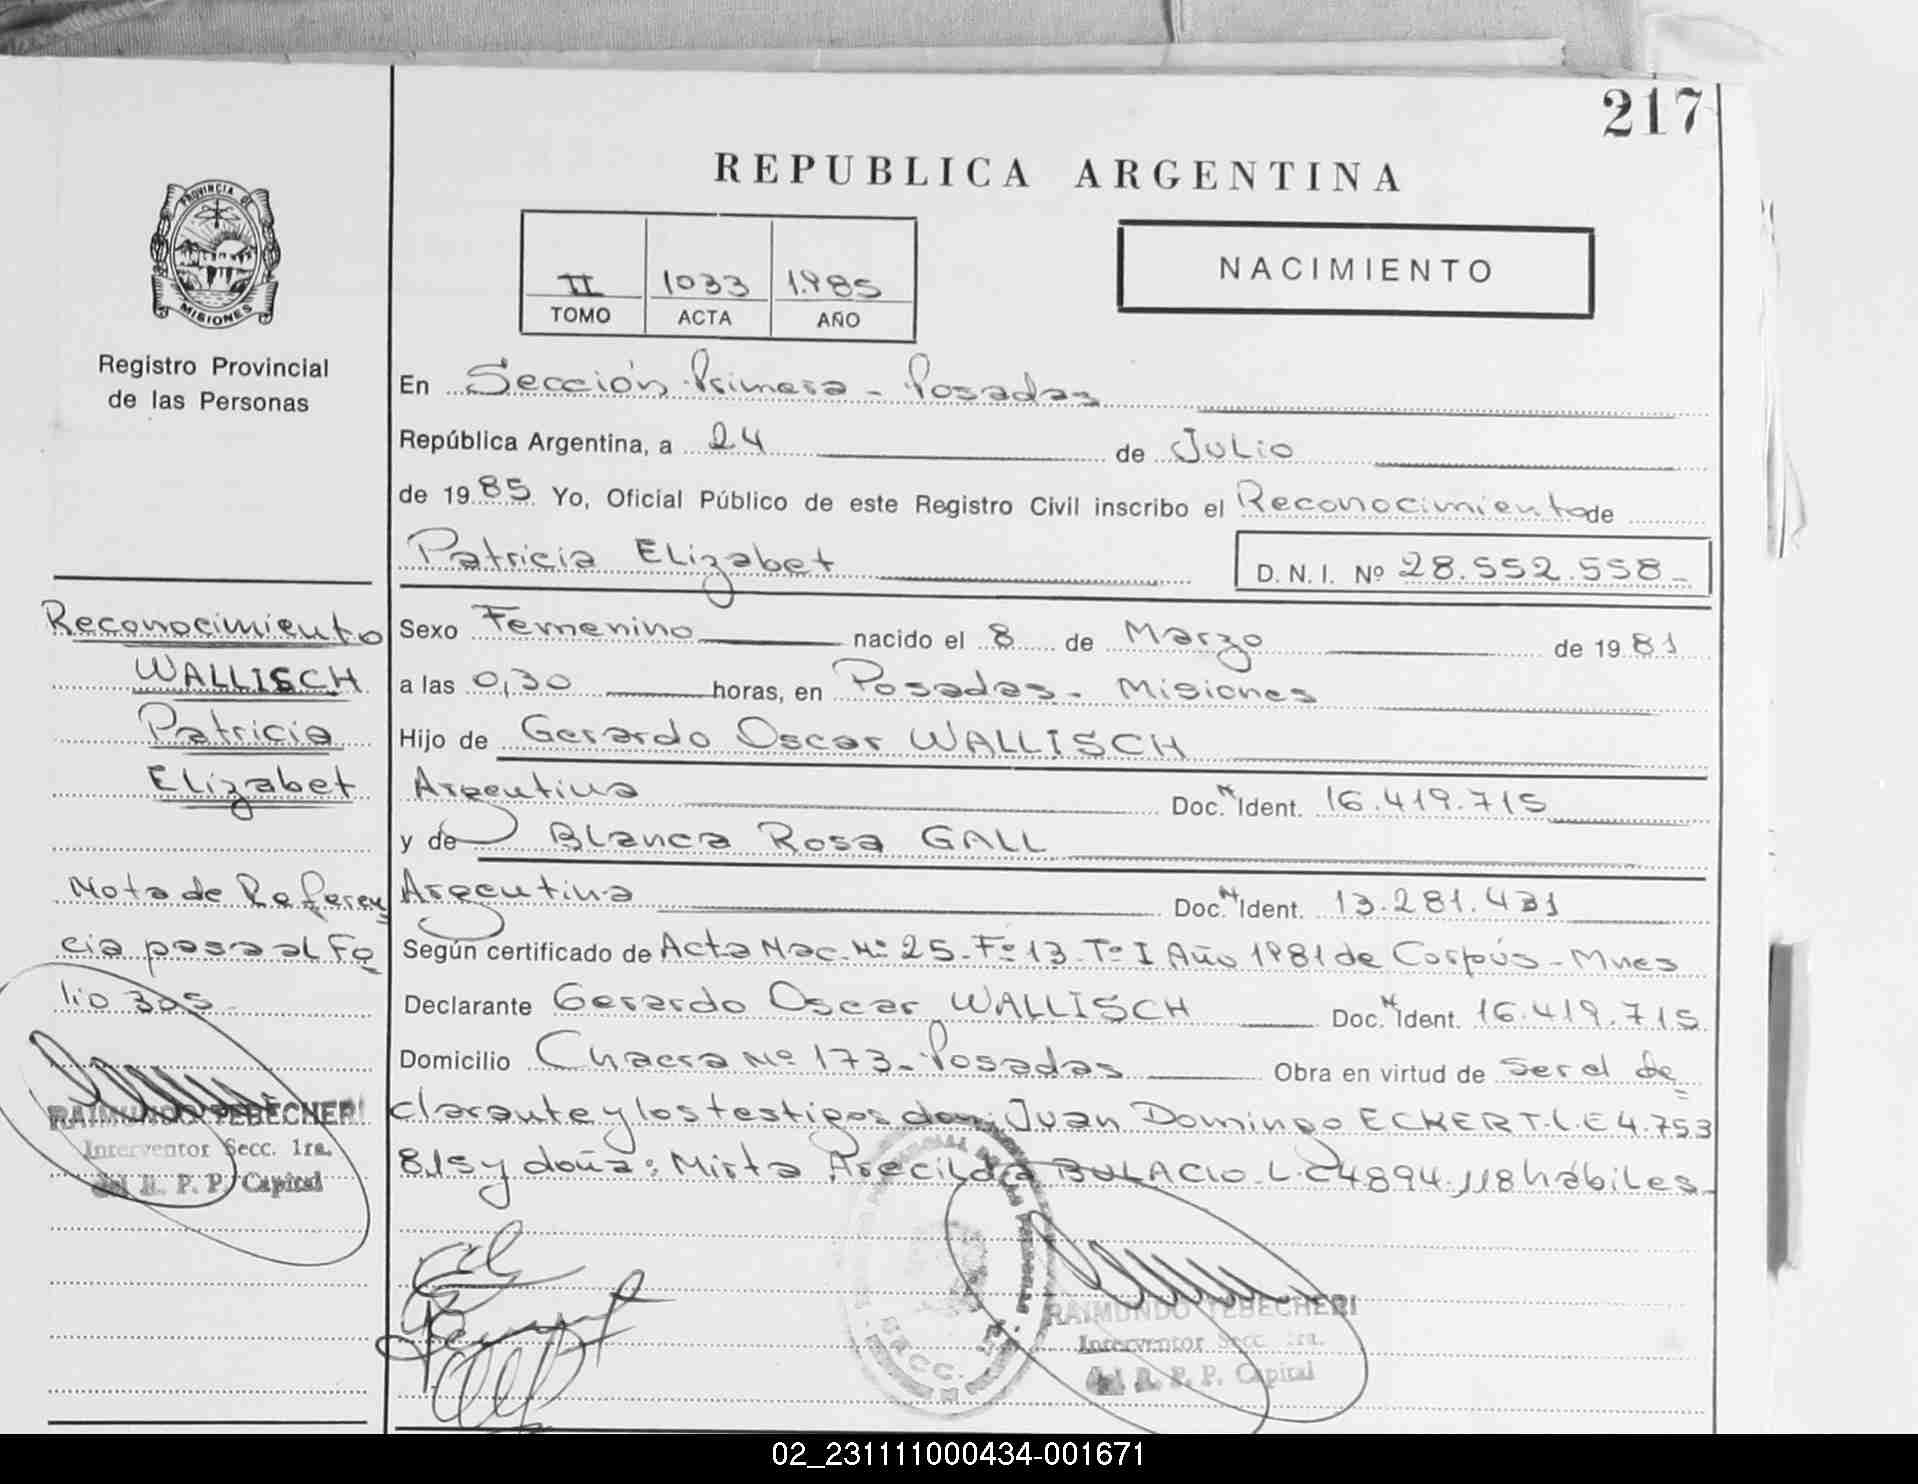 217
REPUBLICA ARGENTINA
PROVINCIA DE
MISIONES
Registro Provincial
de las Personas
II 1033 1985
TOMO ACTA AÑO
NACIMIENTO
En Sección Primera - Posadas
República Argentina, a 24 de Julio
de 1985 Yo, Oficial Público de este Registro Civil inscribo el Reconocimiento de
Patricia Elizabet D. N. I. Nº 28.552.558-
Sexo Femenino nacido el 8 de Marzo de 1981
a las 0,30 horas, en Posadas - Misiones
Hijo de Gerardo Oscar WALLISCH
Argentina Doc. N Ident. 16.419.715
y de Blanca Rosa GALL
Argentina Doc. N Ident. 13.281.431
Según certificado de Acta Nac. Nº 25. Fº 13. Tº I Año 1981 de Corpús - Mnes
Declarante Gerardo Oscar WALLISCH Doc. N Ident. 16.419.715
Domicilio Chacra Nº 173 - Posadas Obra en virtud de ser el de=
clarante y los testigos don: Juan Domingo ECKERT L.E 4.753
815 y doña: Mirta Arecilda BULACIO L.C 4894.118 hábiles-
Reconocimiento
WALLISCH
Patricia
Elizabet
Nota de Referen
cia pasa al Fo
lio 305-
RAIMUNDO TEBECHERI
Interventor Secc. 1ra.
del R. P. P. Capital
RAIMUNDO TEBECHERI
Interventor Secc. 1ra.
del R. P. P. Capital
02_231111000434-001671